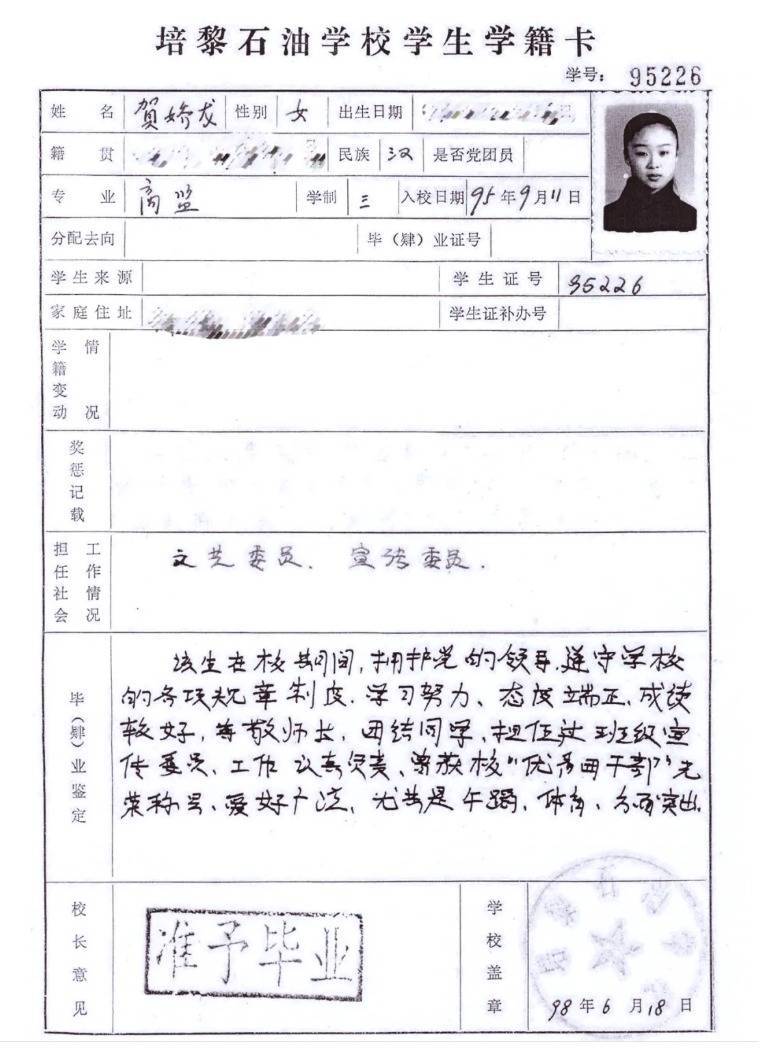 培黎石油学校学生学籍卡
学号: 95226
姓名 贺娇龙 性别 女 出生日期
籍贯 民族 汉 是否党团员
专业 商监 学制 三 入校日期 95年9月11日
分配去向 毕（肄）业证号
学生来源 学生证号 95226
家庭住址 学生证补办号
学籍变动情况
奖惩记载
担任社会工作情况 文艺委员、宣传委员.
毕（肄）业鉴定
该生在校期间,拥护党的领导.遵守学校
的各项规章制度.学习努力、态度端正.成绩
较好,尊敬师长,团结同学、担任过班级宣
传委员、工作认真负责、曾获校"优秀团干部"光
荣称号、爱好广泛,尤其是午蹈、体育、方面突出.
校长意见 准予毕业
学校盖章
98年6月18日